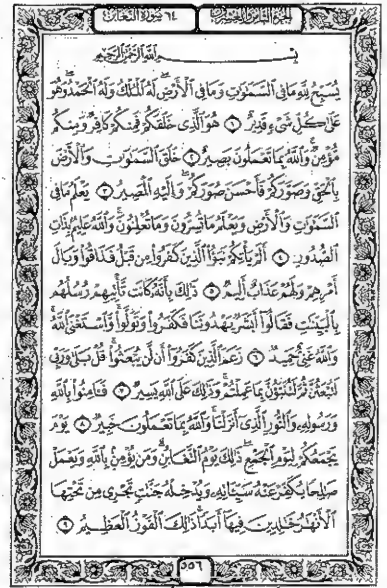 الجزء الثامن والعشرون ٦٤ سورة التغابن
بسم الله الرحمن الرحيم
يُسَبِّحُ لِلَّهِ مَا فِي السَّمَٰوَٰتِ وَمَا فِي الْأَرْضِ ۖ لَهُ الْمُلْكُ وَلَهُ الْحَمْدُ ۖ وَهُوَ
عَلَىٰ كُلِّ شَىْءٍ قَدِيرٌ ١ هُوَ الَّذِى خَلَقَكُمْ فَمِنكُمْ كَافِرٌ وَمِنكُم
مُّؤْمِنٌ ۚ وَاللَّهُ بِمَا تَعْمَلُونَ بَصِيرٌ ٢ خَلَقَ السَّمَٰوَٰتِ وَالْأَرْضَ
بِالْحَقِّ وَصَوَّرَكُمْ فَأَحْسَنَ صُوَرَكُمْ ۖ وَإِلَيْهِ الْمَصِيرُ ٣ يَعْلَمُ مَا فِى
السَّمَٰوَٰتِ وَالْأَرْضِ وَيَعْلَمُ مَا تُسِرُّونَ وَمَا تُعْلِنُونَ ۚ وَاللَّهُ عَلِيمٌ بِذَاتِ
الصُّدُورِ ٤ أَلَمْ يَأْتِكُمْ نَبَؤُا الَّذِينَ كَفَرُوا مِن قَبْلُ فَذَاقُوا وَبَالَ
أَمْرِهِمْ وَلَهُمْ عَذَابٌ أَلِيمٌ ٥ ذَٰلِكَ بِأَنَّهُ كَانَت تَّأْتِيهِمْ رُسُلُهُم
بِالْبَيِّنَٰتِ فَقَالُوا أَبَشَرٌ يَهْدُونَنَا فَكَفَرُوا وَتَوَلَّوا ۚ وَّاسْتَغْنَى اللَّهُ ۚ
وَاللَّهُ غَنِىٌّ حَمِيدٌ ٦ زَعَمَ الَّذِينَ كَفَرُوا أَن لَّن يُبْعَثُوا ۚ قُلْ بَلَىٰ وَرَبِّى
لَتُبْعَثُنَّ ثُمَّ لَتُنَبَّؤُنَّ بِمَا عَمِلْتُمْ ۚ وَذَٰلِكَ عَلَى اللَّهِ يَسِيرٌ ٧ فَـَٔامِنُوا بِاللَّهِ
وَرَسُولِهِ وَالنُّورِ الَّذِى أَنزَلْنَا ۚ وَاللَّهُ بِمَا تَعْمَلُونَ خَبِيرٌ ٨ يَوْمَ
يَجْمَعُكُمْ لِيَوْمِ الْجَمْعِ ۖ ذَٰلِكَ يَوْمُ التَّغَابُنِ ۗ وَمَن يُؤْمِنۢ بِاللَّهِ وَيَعْمَلْ
صَٰلِحًا يُكَفِّرْ عَنْهُ سَيِّـَٔاتِهِ وَيُدْخِلْهُ جَنَّٰتٍ تَجْرِى مِن تَحْتِهَا
الْأَنْهَٰرُ خَٰلِدِينَ فِيهَا أَبَدًا ۚ ذَٰلِكَ الْفَوْزُ الْعَظِيمُ ٩
٥٥٦